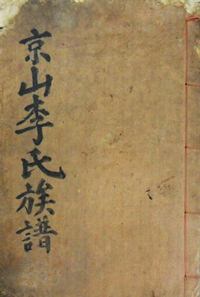 京山李氏族譜